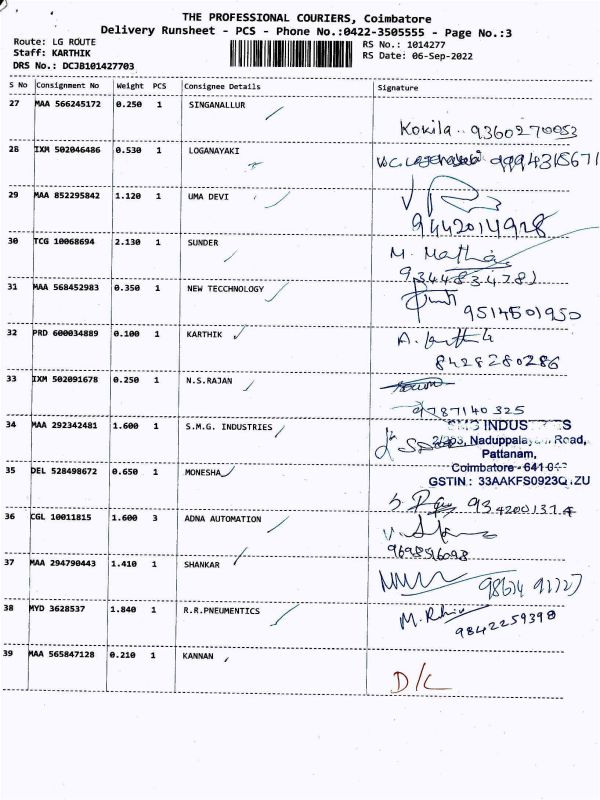 THE PROFESSIONAL COURIERS, Coimbatore
Delivery Runsheet - PCS - Phone No.:0422-3505555 - Page No.:3
Route: LG ROUTE
Staff: KARTHIK
DRS No.: DCJB101427703
RS No.: 1014277
RS Date: 06-Sep-2022
S No Consignment No Weight PCS Consignee Details Signature
27 MAA 566245172 0.250 1 SINGANALLUR
Kokila 9360270053
28 IXM 502046486 0.530 1 LOGANAYAKI
29 MAA 852295842 1.120 1 UMA DEVI
9442014928
30 TCG 10068694 2.130 1 SUNDER
M.
9344834781
31 MAA 568452983 0.350 1 NEW TECCHNOLOGY
9514501950
32 PRD 600034889 0.100 1 KARTHIK
A. Karthik
8428280286
33 IXM 502091678 0.250 1 N.S.RAJAN
9787140325
34 MAA 292342481 1.600 1 S.M.G. INDUSTRIES
Naduppalay Road,
Pattanam,
Coimbatore - 641
GSTIN : 33AAKFS0923Q ZU
35 DEL 528498672 0.650 1 MONESHA
36 CGL 10011815 1.600 3 ADNA AUTOMATION
37 MAA 294790443 1.410 1 SHANKAR
38 MYD 3628537 1.840 1 R.R.PNEUMENTICS
9842259398
39 MAA 565847128 0.210 1 KANNAN
D/L